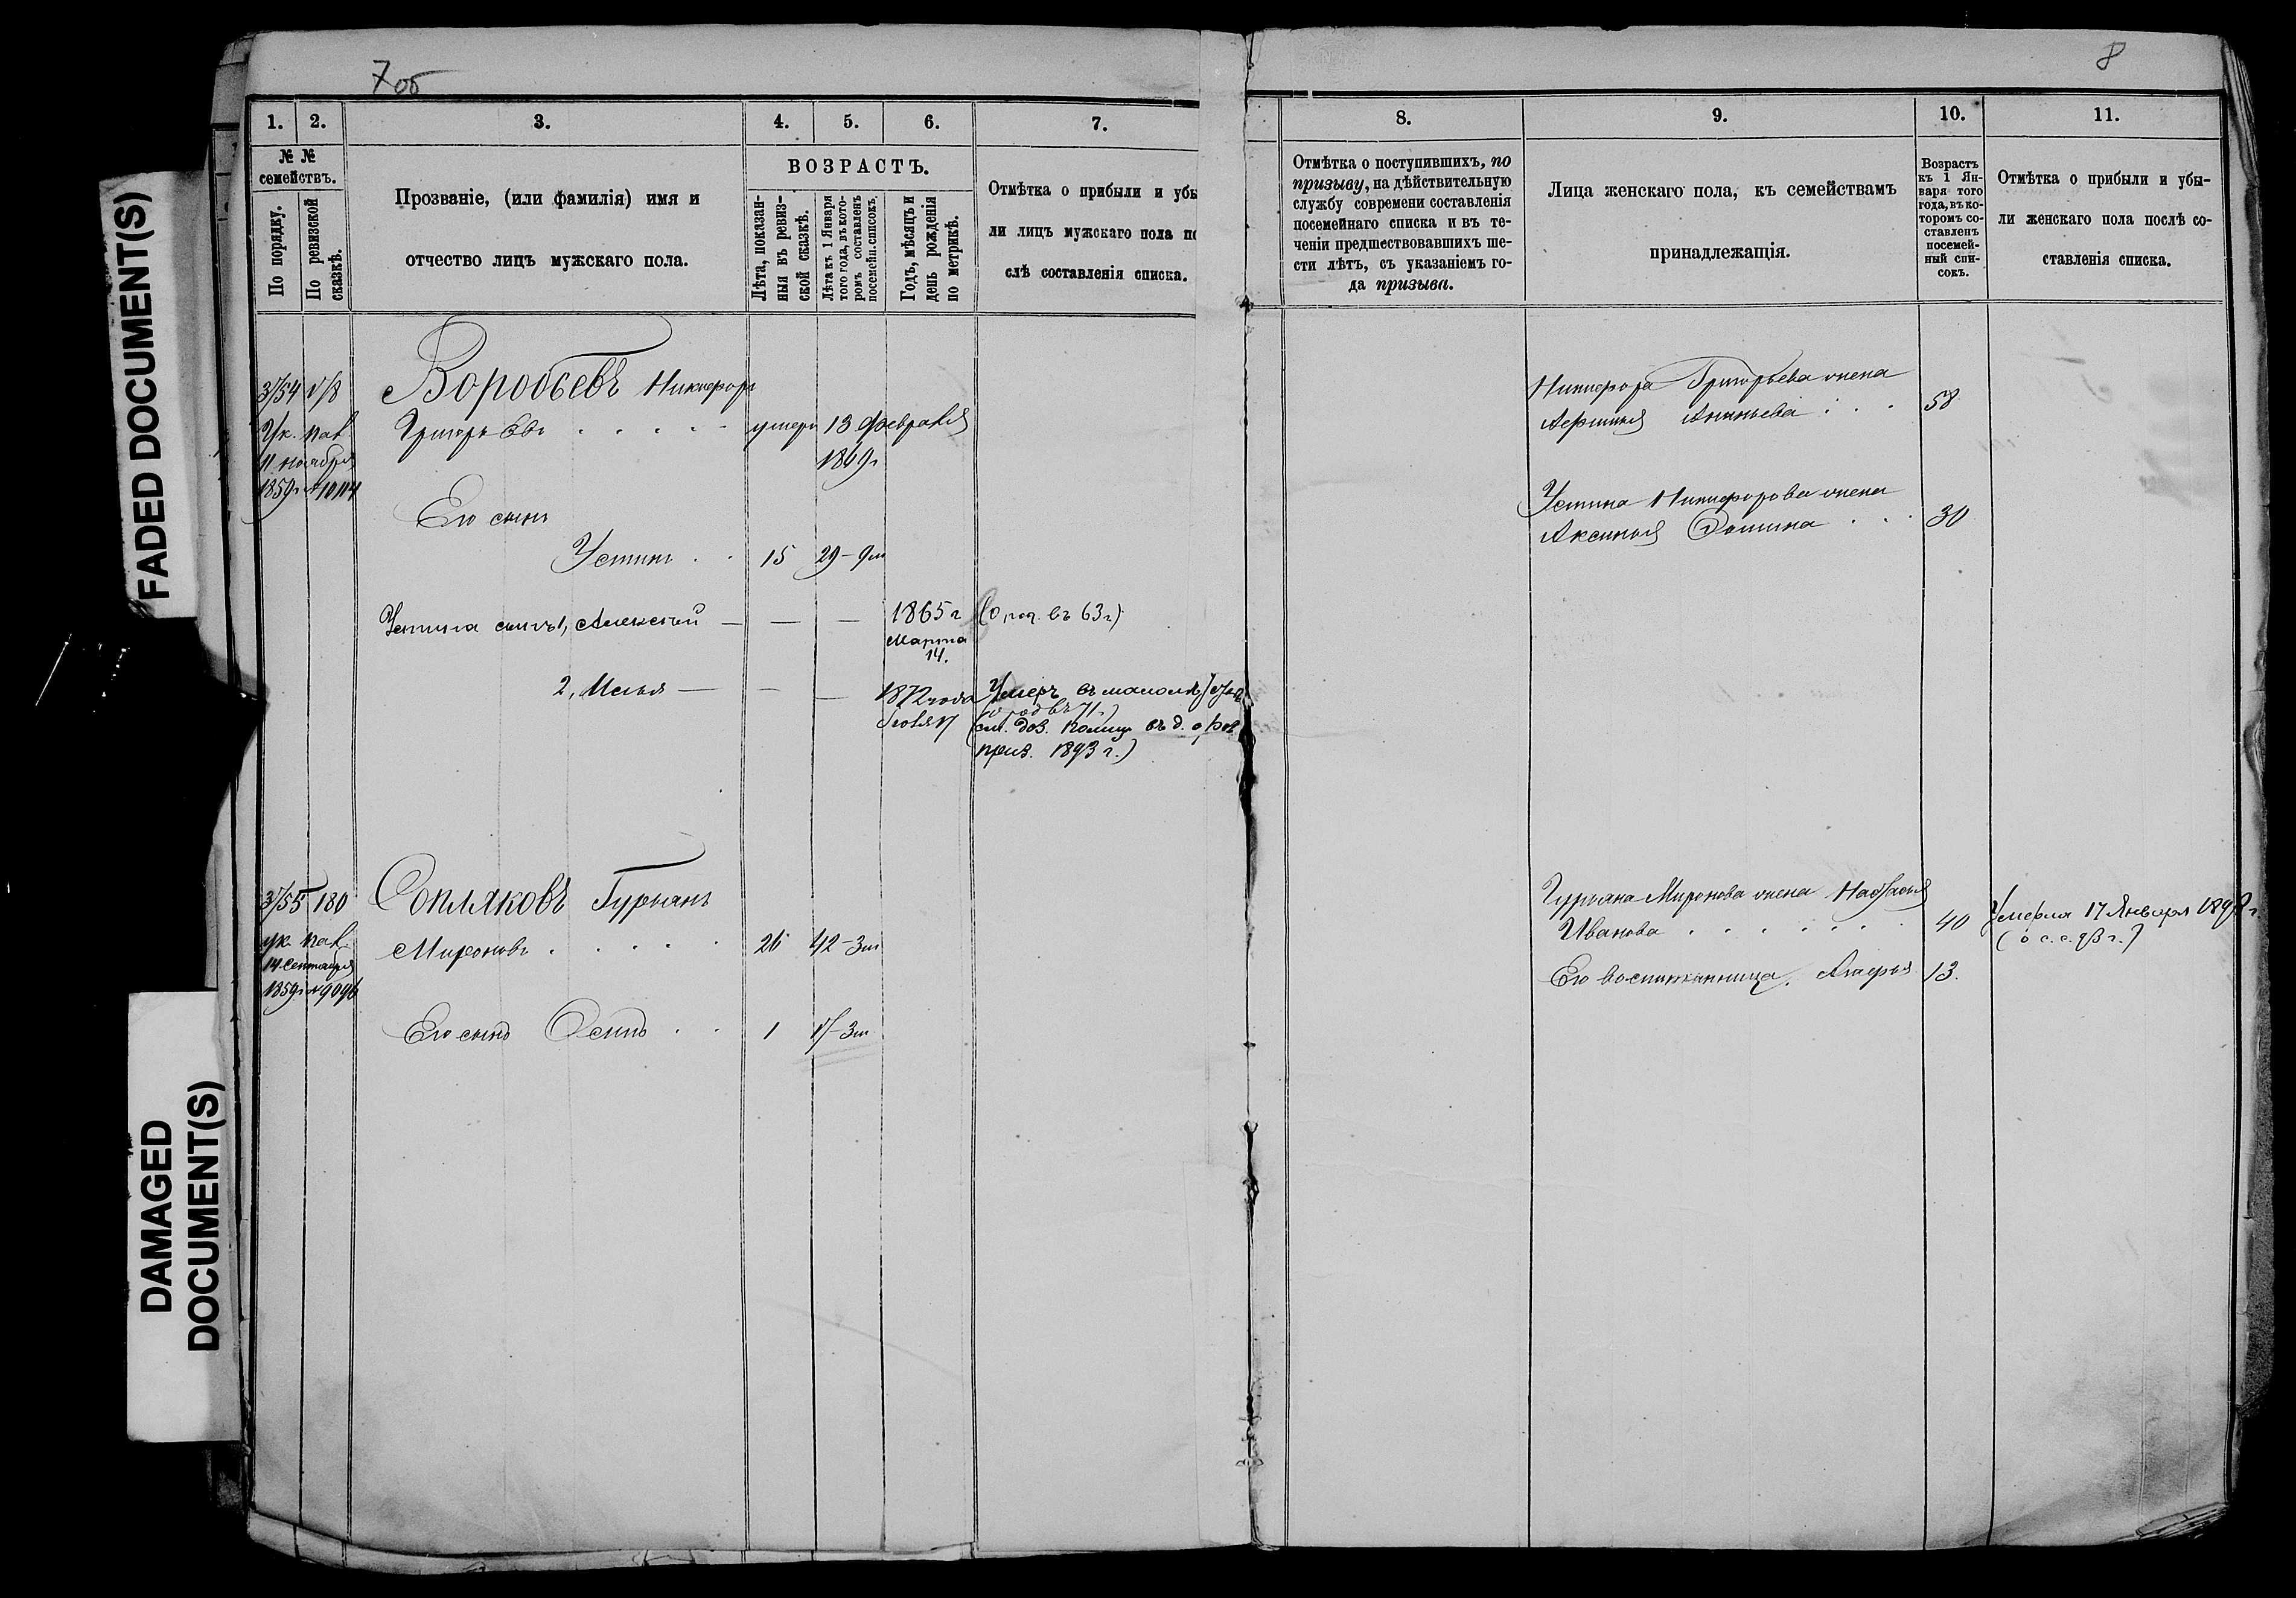 7об
8
FADED DOCUMENT(S)
DAMAGED
DOCUMENT(S)
1. 2. 3. 4. 5. 6. 7.
№ №
семействъ.
По порядку.
По ревизской
сказкѣ.
Прозваніе, (или фамилія) имя и
отчество лицъ мужскаго пола.
ВОЗРАСТЪ.
Лѣта, показан-
ныя въ ревиз-
ской сказкѣ.
Лѣта къ 1 Января
того года, въ кото-
ромъ составленъ
посемейн. списокъ.
Годъ, мѣсяцъ и
день рожденія
по метрикѣ.
Отмѣтка о прибыли и убы
ли лицъ мужскаго пола по
слѣ составленія списка.
Воробьевъ Никифоръ
Ук. пал.
Григорьевъ умеръ 13 февраля
11 ноября
1869г
1859г № 10114
Его сынъ
Устинъ 15 29-9м
Устина сынъ 1, Алексѣй — — — 1865г (о род. въ 63г)
Марта
14.
2, Илья — — — 1872 года Умеръ въ малолѣт
призв. 1893 г.)
Сопляковъ Гурьянъ
ук. пал.
Мироновъ 26 42-3м
14 Сентября
1859г № 9096
Его сынъ Осипъ 1 17-3м
8. 9. 10. 11.
Отмѣтка о поступившихъ, по
призыву, на дѣйствительную
службу современи составленія
посемейнаго списка и въ те-
ченіи предшествовавшихъ ше-
сти лѣтъ, съ указаніемъ го-
да призыва.
Лица женскаго пола, къ семействамъ
принадлежащія.
Возрастъ
къ 1 Ян-
варя того
года, въ ко-
торомъ со-
ставленъ
посемей-
ный спи-
сокъ.
Отмѣтка о прибыли и убы-
ли женскаго пола послѣ со-
ставленія списка.
Никифора Григорьева жена
Ананьева 58
Устина Никифорова жена
Аксинья Фомина 30
Гурьяна Миронова жена Настасья
Иванова 40 Умерла 17 Января
(о с. с. 93 г.)
Его воспитанница, Агафья 13.